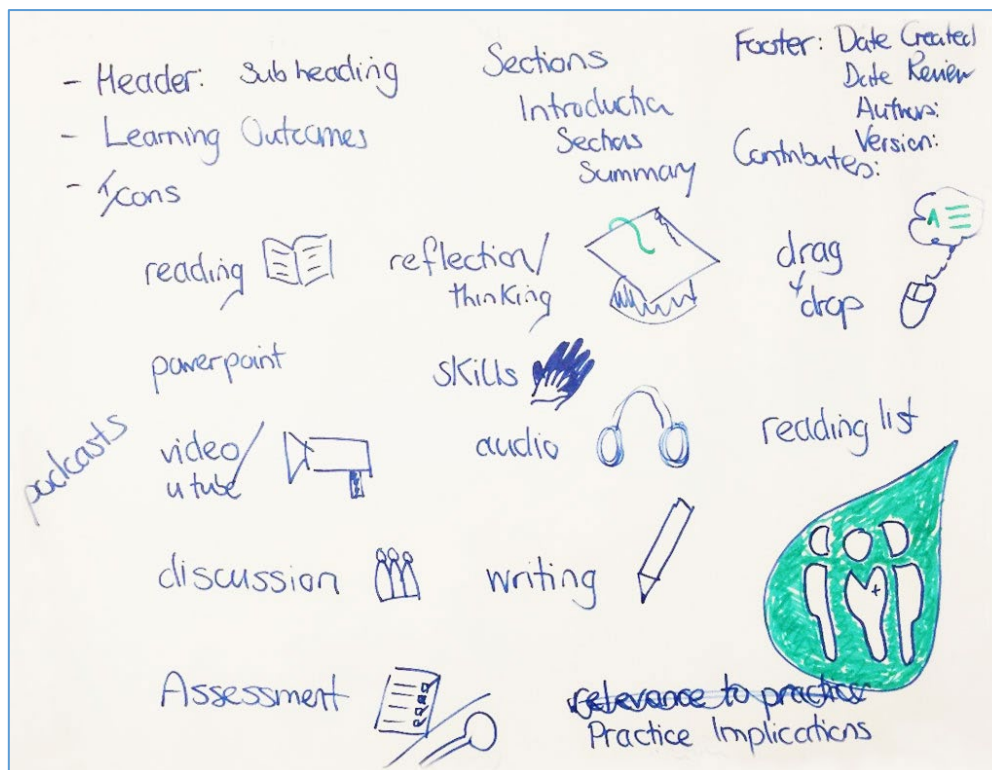 - Header: Sub heading
- Learning Outcomes
- Icons
Sections
Introduction
Sections
Summary
Footer: Date Created
Date Review
Authors:
Version:
Contributers:
reading
reflection/
thinking
drag
+ drop
powerpoint
skills
podcasts
video/
u tube
audio
reading list
discussion
writing
Assessment
relevance to practice
Practice Implications